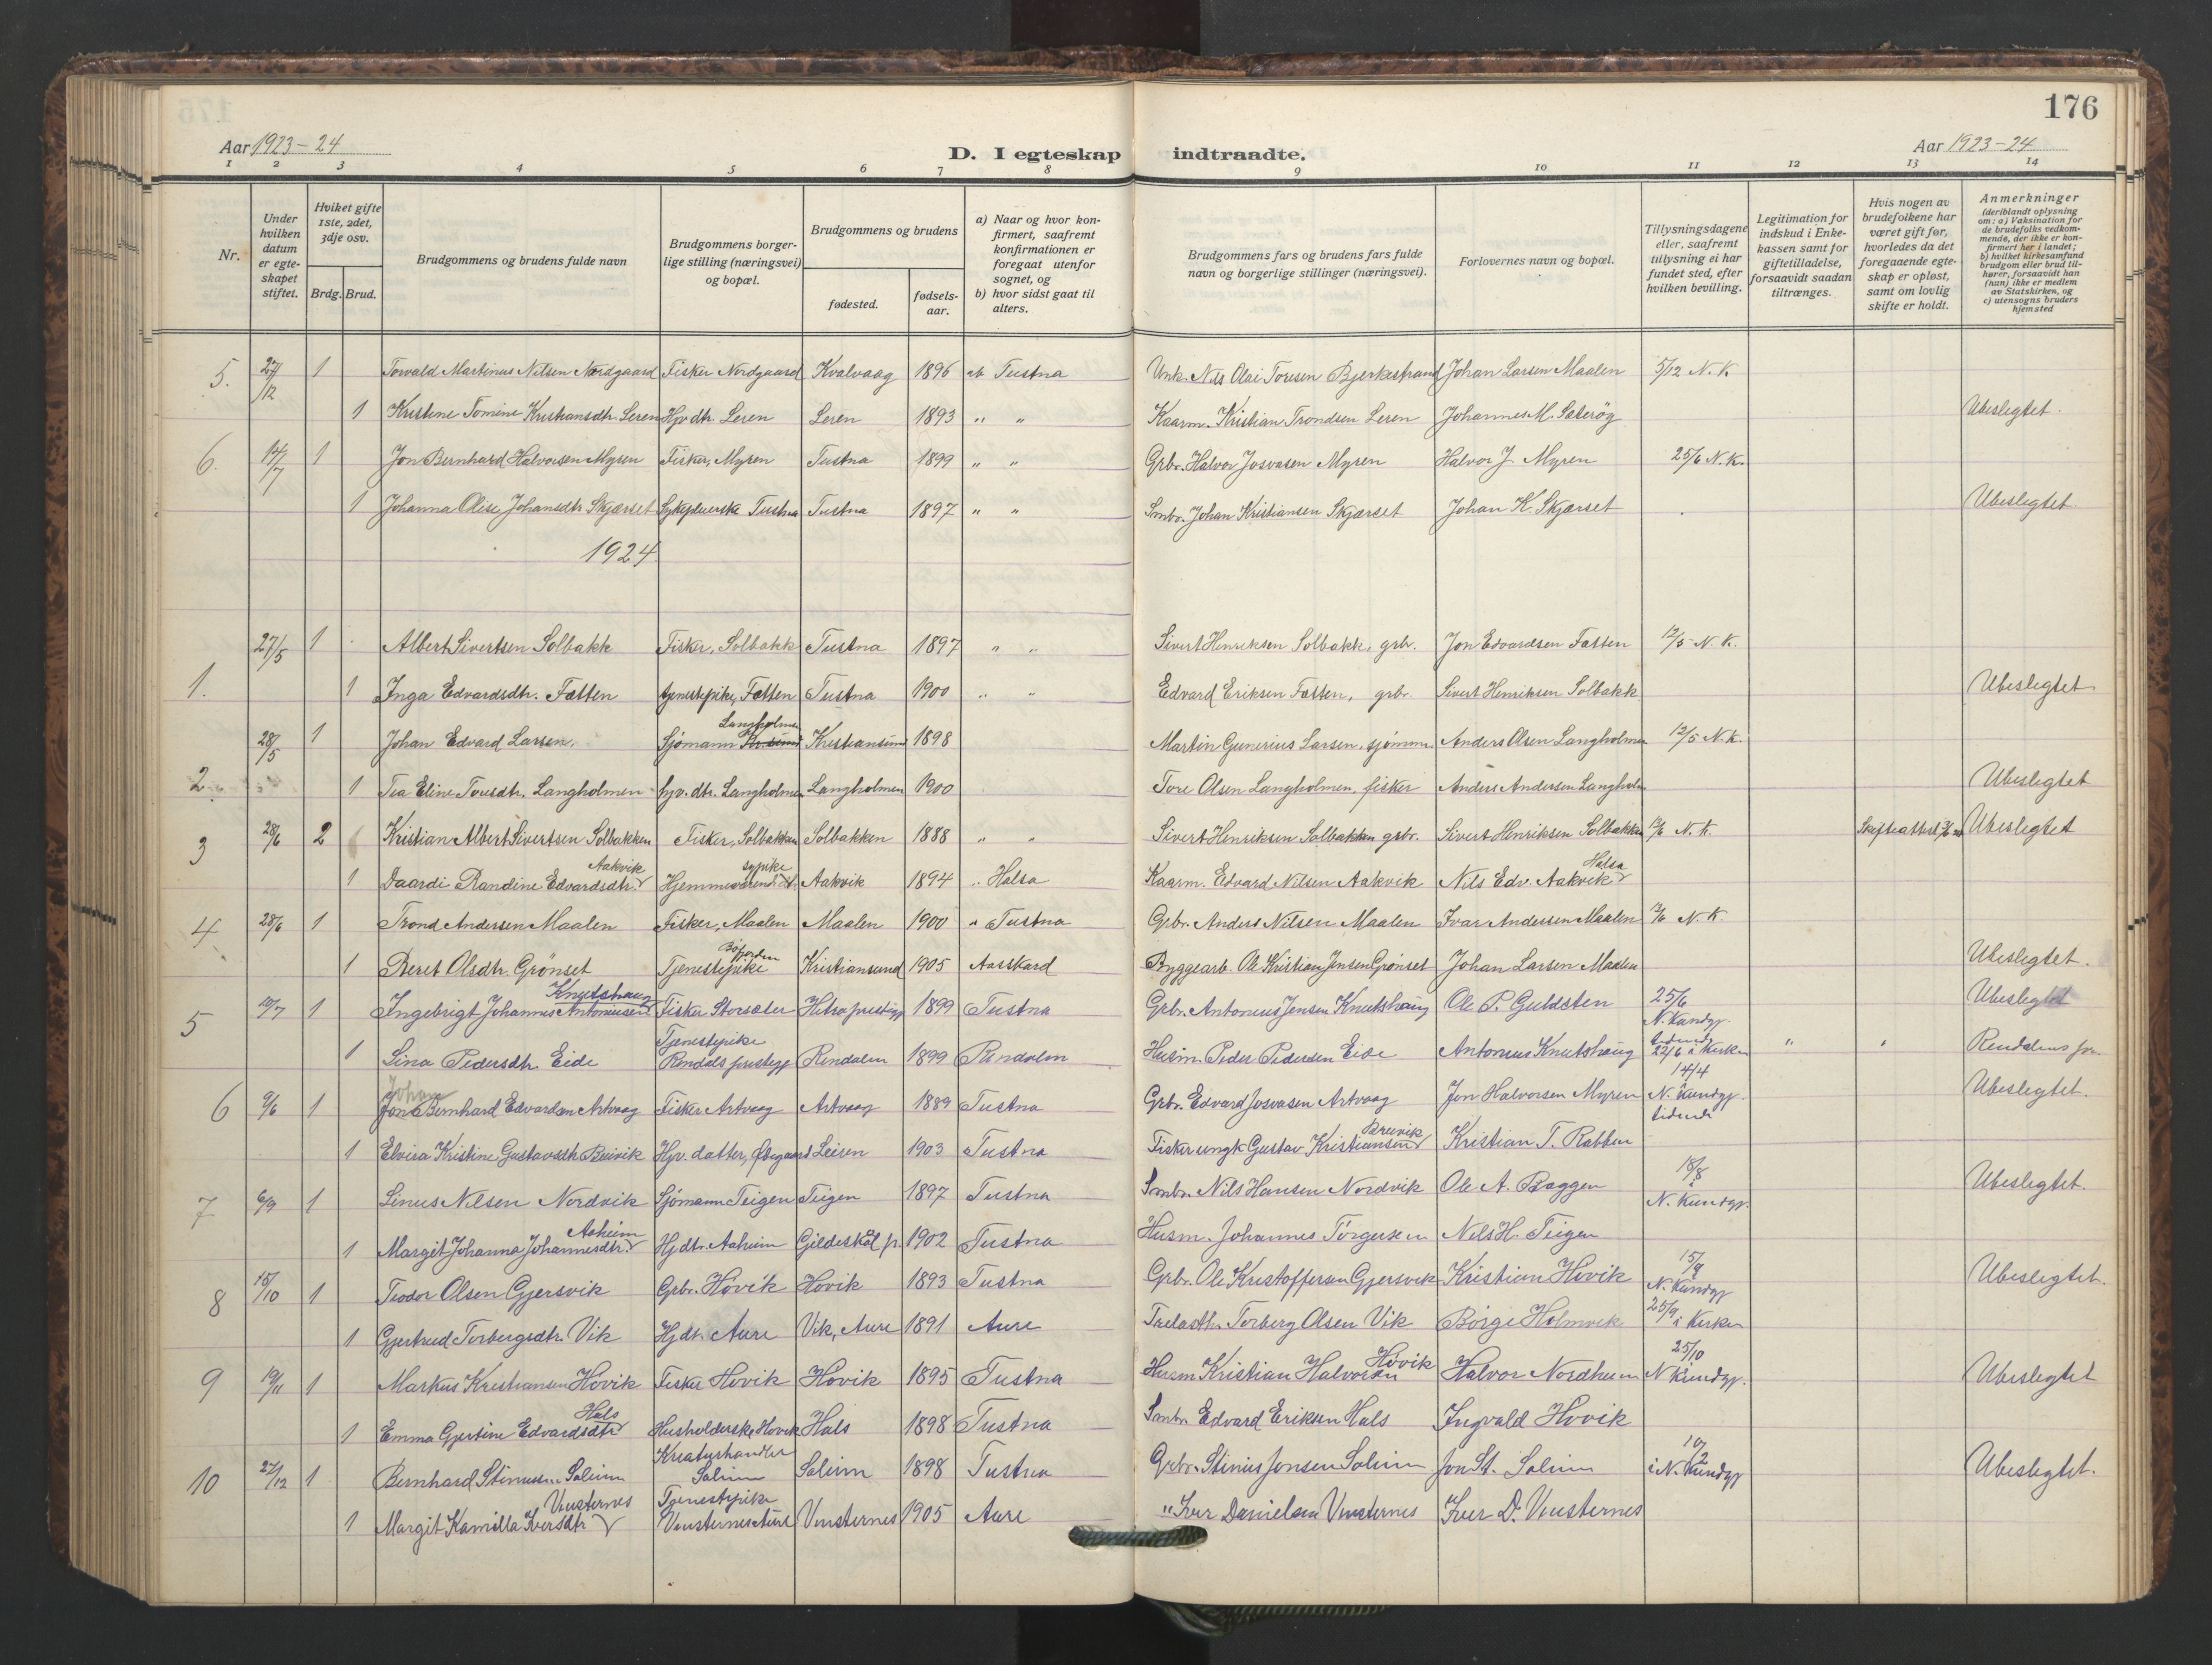 176
Aar 1923-24
D. I egteskap indtraadte.
Aar 1923-24
1 2 3 4 5 6 7 8 9 10 11 12 13 14
Nr.
Under hvilken datum er egteskapet stiftet.
Hviket gifte 1ste, 2det, 3dje osv.
Brdg. Brud.
Brudgommens og brudens fulde navn
Brudgommens borgerlige stilling (næringsvei) og bopæl.
Brudgommens og brudens
fødested.
fødselsaar.
a) Naar og hvor konfirmert, saafremt konfirmationen er foregaat utenfor sognet, og
b) hvor sidst gaat til alters.
Brudgommens fars og brudens fars fulde navn og borgerlige stillinger (næringsvei).
Forlovernes navn og bopæl.
Tillysningsdagene eller, saafremt tillysning ei har fundet sted, efter hvilken bevilling.
Legitimation for indskud i Enkekassen samt for giftetilladelse, forsaavidt saadan tiltrænges.
Hvis nogen av brudefolkene har været gift før, hvorledes da det foregaaende egteskap er opløst, samt om lovlig skifte er holdt.
Anmerkninger (deriblandt oplysning om: a) Vaksination for de brudefolks vedkommende, der ikke er konfirmert her i landet; b) hvilket kirkesamfund brudgom eller brud tilhører, forsaavidt han (hun) ikke er medlem av Statskirken, og c) utensogns bruders hjemsted
5. 27/12 1 Torvald Martinus Nilsen Nordgaard Fisker Nordgaard Kvalvaag 1896 Tustna Nils Olai Toresen Bjerkestrand Johan Larsen Maalen 5/12 N.K.
1 Kristine Tomine Kristiansdtr. Leren Hjv dtr. Leren Leren 1893 " " Kaarm. Kristian Trondsen Leren Johannes M. Säterög Ubeslegtet.
6. 14/7 1 Jon Bernhard Halvorsen Myren Fisker, Myren Tustna 1899 " " Grbr. Halvor Josvasen Myren Halvor J. Myren 25/6 N.K.
1 Johanna Olise Johansdtr. Skjærset Sykepleierske Tustna Tustna 1897 " " Smbr. Johan Kristiansen Skjærset Johan K. Skjærset Ubeslegtet
1924
27/5 1 Albert Sivertsen Solbakk Fisker, Solbakk Tustna 1897 " " Sivert Henriksen Solbakk, grbr. Jon Edvardsen Fætten 12/5 N.K.
1. 1 Inga Edvardsdtr. Fætten tjenestepike, Fætten Tustna 1900 " " Edvard Eriksen Fætten, grbr. Sivert Henriksen Solbakk Ubeslegtet
Langholmen
28/5 1 Johan Edvard Larsen, Sjømann Kristiansund 1898 Martin Gunerius Larsen, sjømm. Anders Olsen Langholmen 12/5 N.K.
2. 1 Tea Eline Toresdtr. Langholmen hjv. dtr. Langholmen Langholmen 1900 Tore Olsen Langholmen, fisker Anders Andersen Langholm Ubeslegtet
3 28/6 2 Kristian Albert Sivertsen Solbakken Fisker, Solbakken Solbakken 1888 " " Sivert Henriksen Solbakken grbr. Sivert Henriksen Solbakken 12/6 N.K. Ubeslegtet
Aakvik sypike Halsa
1 Daardi Randine Edvardsdtr. Hjemmeværende Aakvik 1894 " Halsa Kaarm. Edvard Nilsen Aakvik Nils Edv. Aakvik
4 28/6 1 Trond Andersen Maalen Fisker, Maalen Maalen 1900 " Tustna Grbr. Anders Nilsen Maalen Ivar Andersen Maalen 12/6 N.K.
Bøfjorden
1 Beret Olsdtr. Grønset Tjenestepike Kristiansund 1905 Aasskard Byggearb. Ole Kristian Jensen Grønset Johan Larsen Maalen Ubeslegtet.
Knutshaug
5 10/7 1 Ingebrigt Johannes Antoniussen Fisker Storsæter Hitra prestegj 1899 Tustna Grbr. Antonius Jensen Knutshaug Ole P. Guldsten 25/6 N. Kundgj. Ubeslegtet
Tjenestepike
1 Lina Pedersdtr. Eide Rendals prestegj Rendalen 1899 Rendalen Husm. Peder Pedersen Eide Antonius Knutshaug 22/6 i Kirken " " Rendalens pr.
Johan
6 9/6 1 Jon Bernhard Edvardsen Artvaag Fisker Artvaag Artvaag 1889 Tustna Grbr. Edvard Josvasen Artvaag Jon Halvorsen Myren 14/4 N. Kundgj. tidende Ubeslegtet.
Breivik
1 Elvira Kristine Gustavsdtr. Breivik Hjv. datter, Ødegaard Leiren 1903 Tustna Fisker ungk Gustav Kristiansen Kristian T. Rabben
7 6/9 1 Linus Nilsen Nordvik Sjømann Teigen Teigen 1897 Tustna Smbr. Nils Hansen Nordvik Ole A. Baggen 18/8 i N. Kundgj. Ubeslegtet.
Aaheim
1 Margit Johanna Johannesdtr. Hjdtr. Aaheim Gjildeskål p. 1902 Tustna Husm. Johannes Torgersen Nils H. Teigen
8 15/10 1 Teodor Olsen Gjersvik Grbr. Hövik Hövik 1893 Tustna Grbr. Ole Kristoffersen Gjersvik Kristian Hövik 15/9 i N. Kundgj Ubeslegtet.
1 Gjertrud Torbergsdtr. Vik Hjdtr. Aure Vik, Aure 1891 Aure Trelasth. Torberg Olsen Vik Börge Holmvik 25/9 i Kirken
Hövik
9 19/11 1 Markus Kristiansen Hövik Fisker Hövik Hövik 1895 Tustna Husm Kristian Halvorsen Halvor Nordheim 25/10 i N Kundgj. Ubeslegtet
Hals
1 Emma Gjertine Edvardsdtr Husholderske Hovik Hals 1898 Tustna Smbr Edvard Eriksen Hals Ingvald Hovik
Kreaturhandler
10 27/12 1 Bernhard Stinussen Soleim Soleim Soleim 1898 Tustna Grbr. Stinus Jonsen Soleim Jon St. Soleim 10/2 i N. Kundgj Ubeslegtet.
Vensternes Tjenestepike
1 Margit Kamilla Iversdtr Vensternes Aure Vensternes 1905 Aure " Iver Danielsen Vensternes Iver D. Vensternes